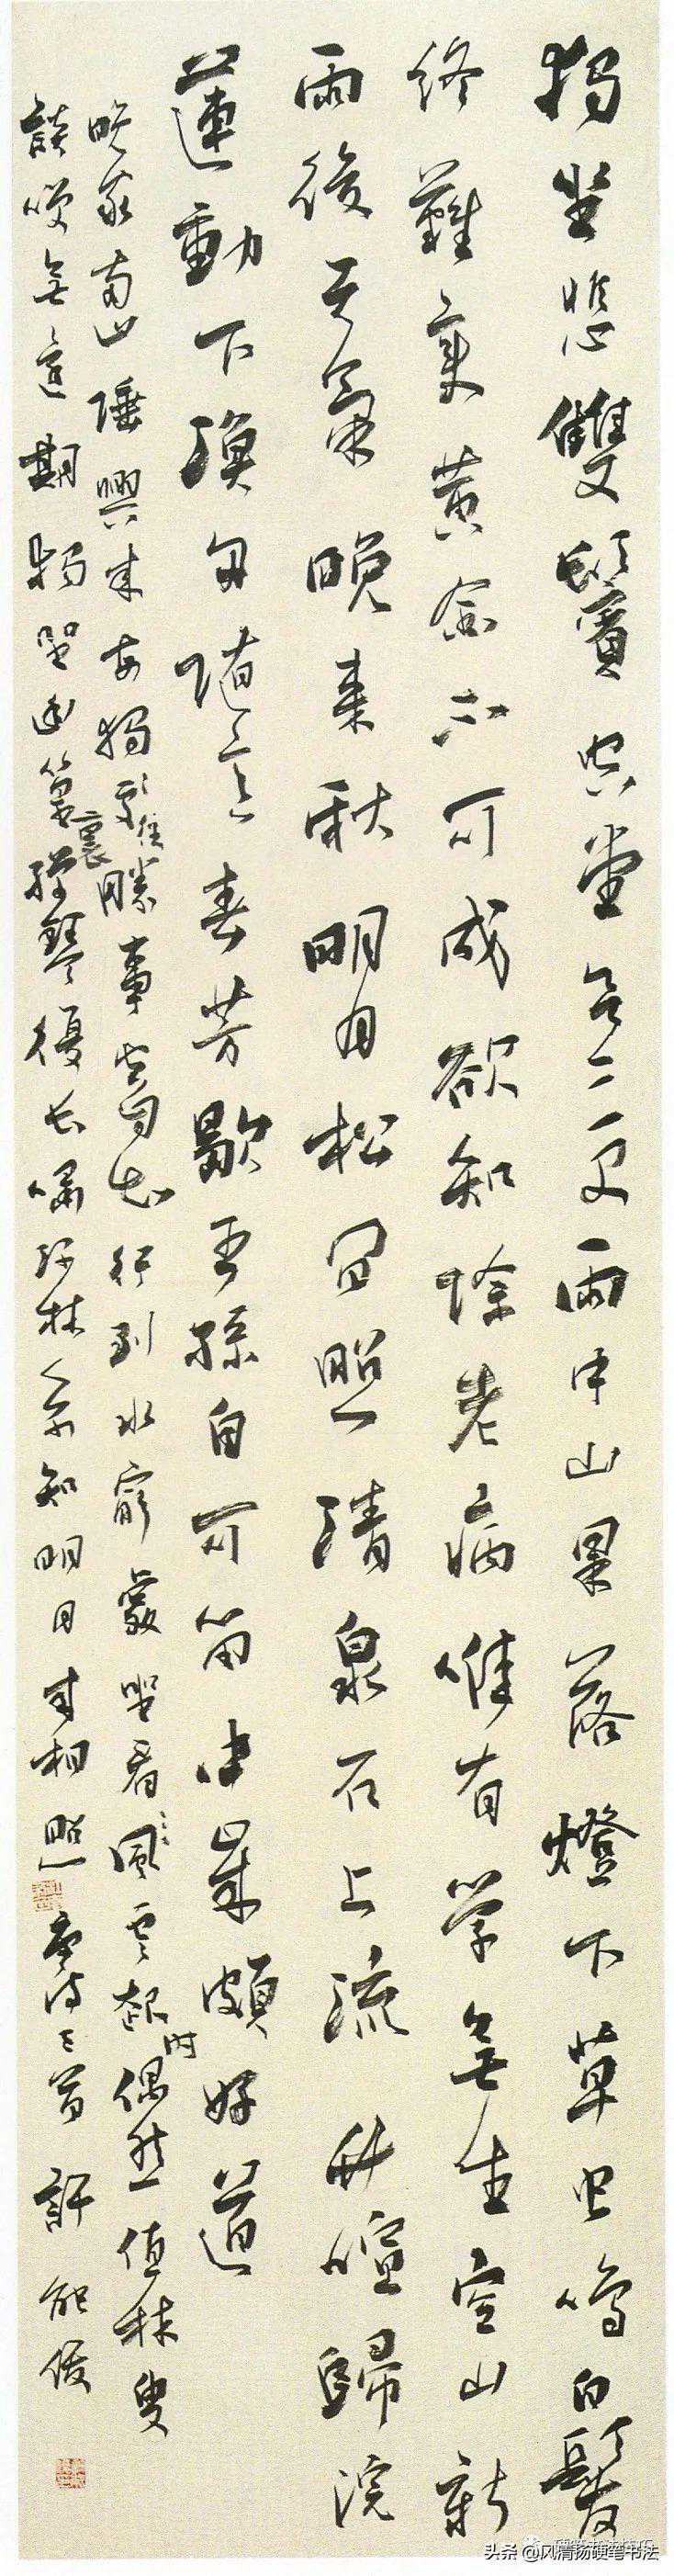 獨坐悲雙鬢空堂欲二更雨中山果落燈下草虫鳴白髮
終難變黃金不可成欲知除老病唯有學無生空山新
雨後天氣晚來秋明月松間照清泉石上流竹喧歸浣
蓮動下漁舟隨意春芳歇王孫自可留中歲頗好道
晚家南山陲興來每獨往勝事空自知行到水窮處坐看風雲起時偶然值林叟
談笑無還期獨坐幽篁裏彈琴復長嘯深林人不知明月來相照 唐詩三首 許能俊
头条 @风清扬硬笔书法